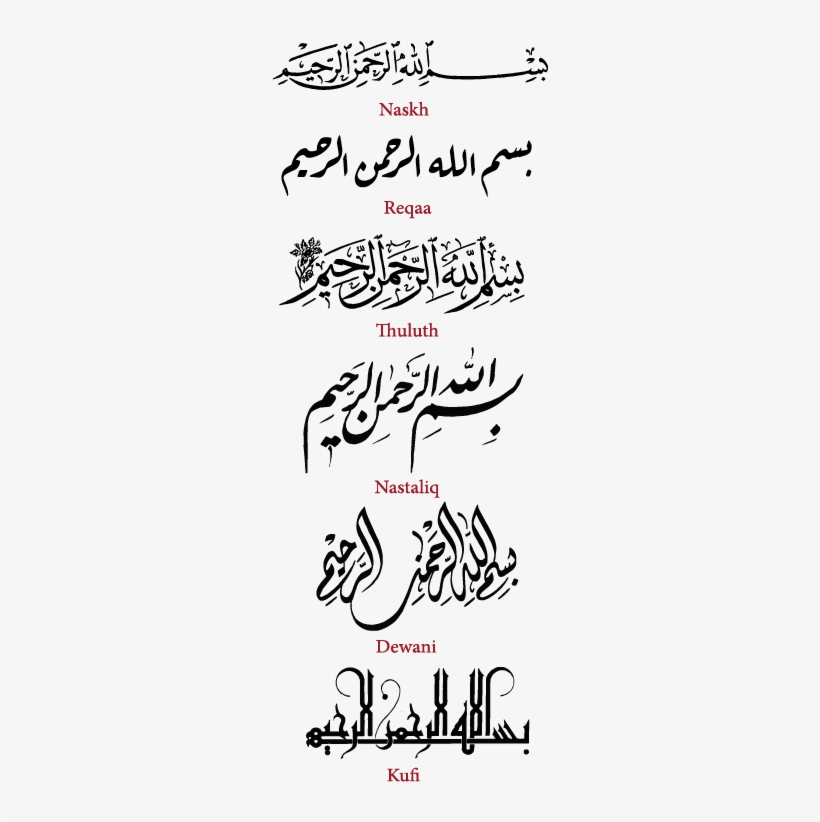 بسم الله الرحمن الرحيم
Naskh
بسم الله الرحمن الرحيم
Reqaa
بِسْمِ اللَّهِ الرَّحْمَنِ الرَّحِيمِ
Thuluth
بسم الله الرحمن الرحيم
Nastaliq
بسم الله الرحمن الرحيم
Dewani
بسم الله الرحمن الرحيم
Kufi